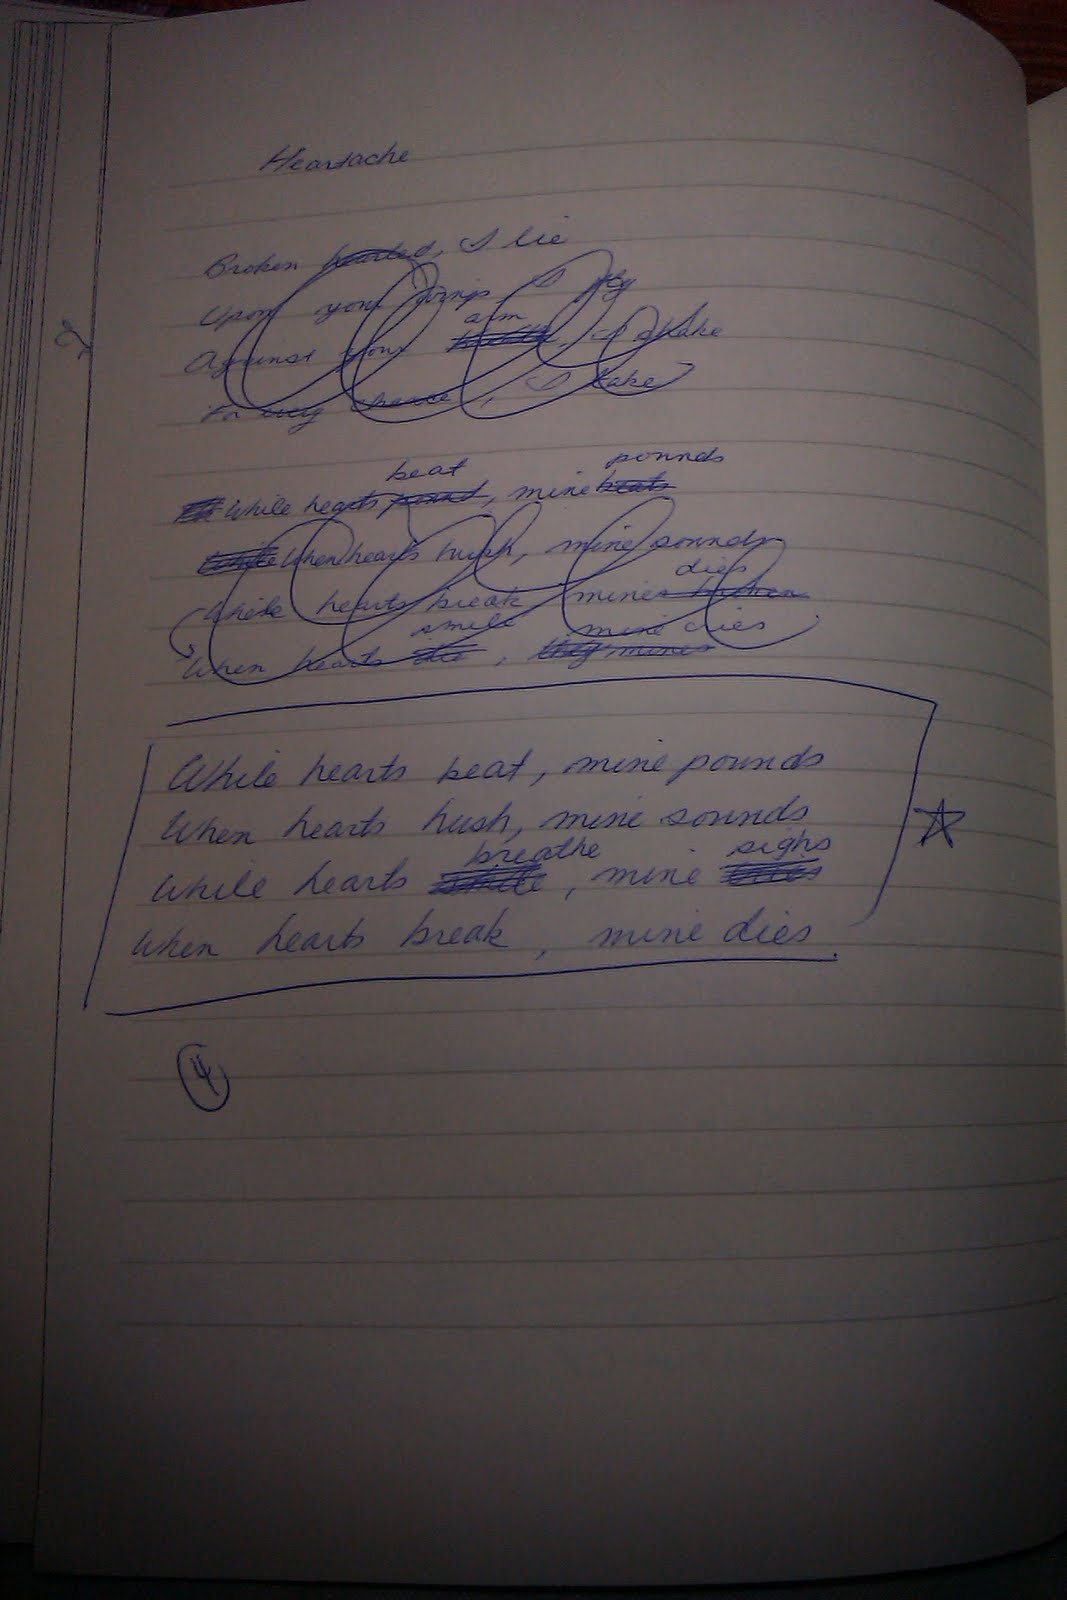 Heartache
Broken hearted, I lie
Upon your wings I fly
Against your arm, I shake
chance, I take
beat pounds
While hearts pound, mine beats
While When hearts hush, mine sounds
dies
While hearts break mine
smile mine dies
When hearts die, they mines
While hearts beat, mine pounds
When hearts hush, mine sounds
breathe sighs
While hearts smile, mine
When hearts break, mine dies.
4